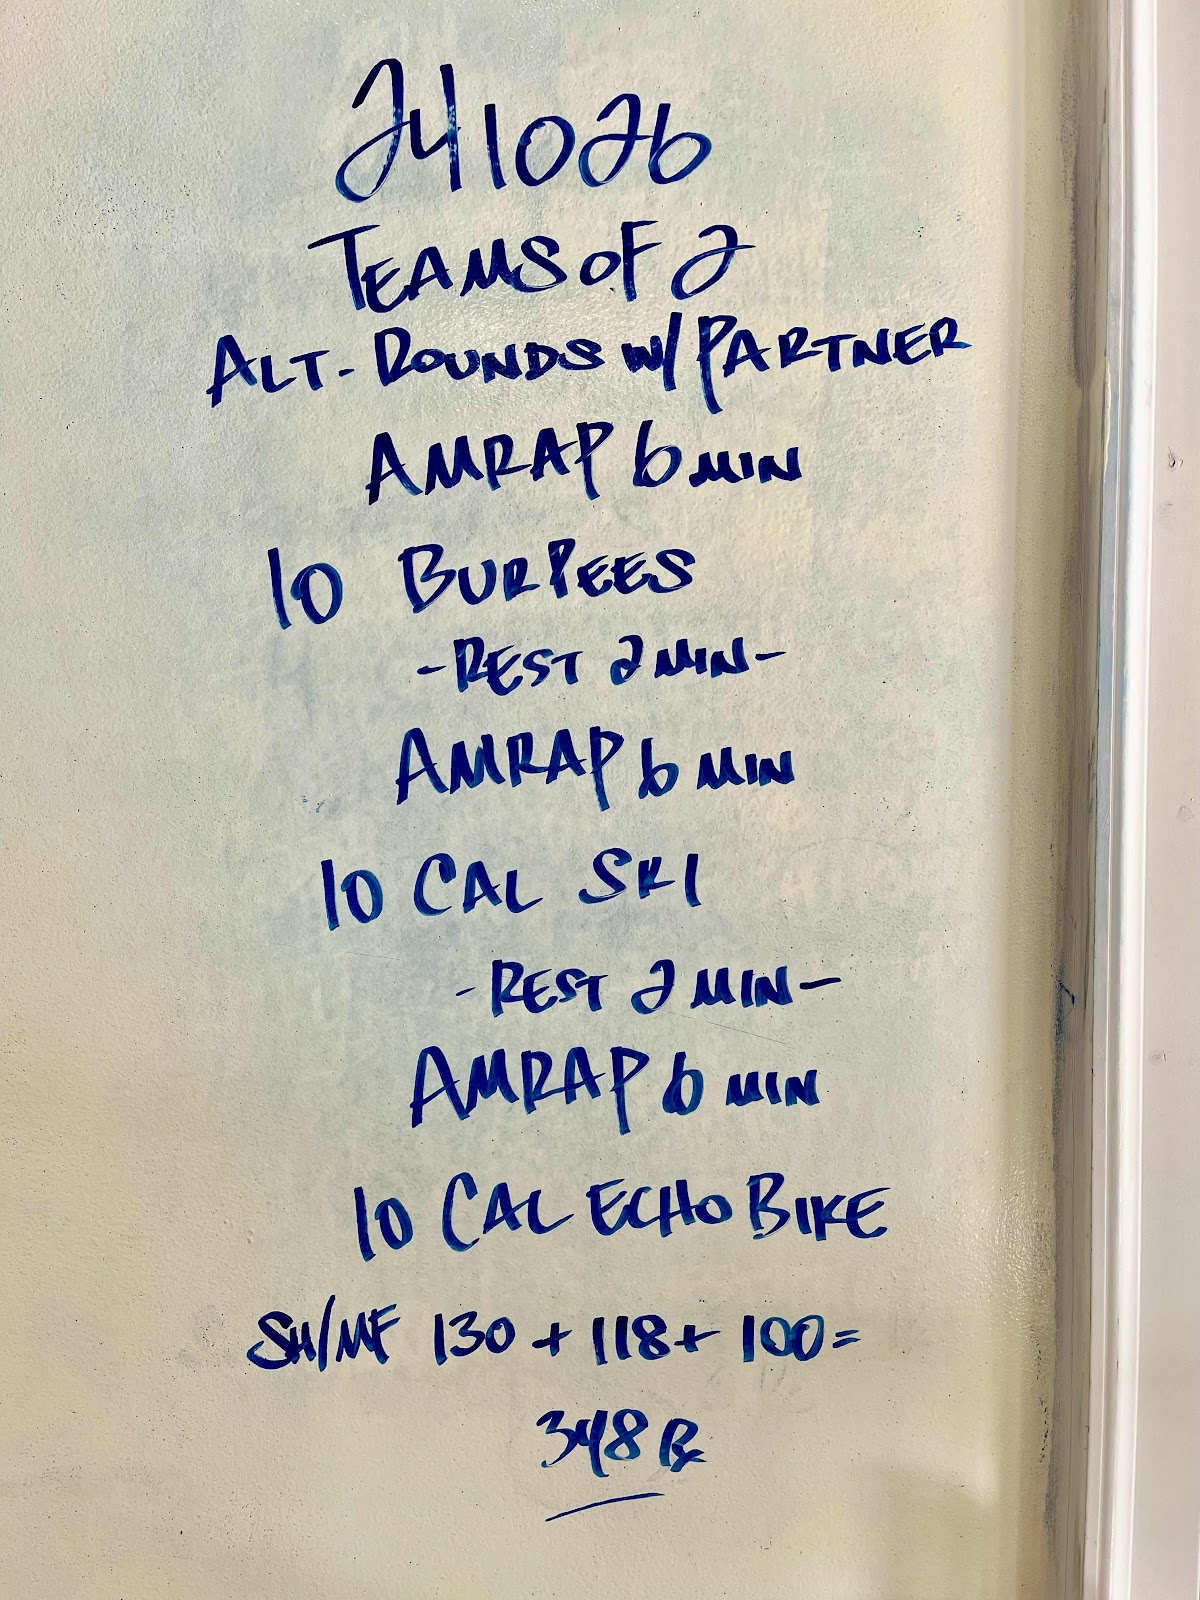 241026
TEAMS OF 2
ALT. ROUNDS W/ PARTNER
AMRAP 6 MIN
10 BURPEES
-REST 2 MIN-
AMRAP 6 MIN
10 CAL SKI
-REST 2 MIN-
AMRAP 6 MIN
10 CAL ECHO BIKE
SH/MF 130 + 118 + 100 =
348 Rx